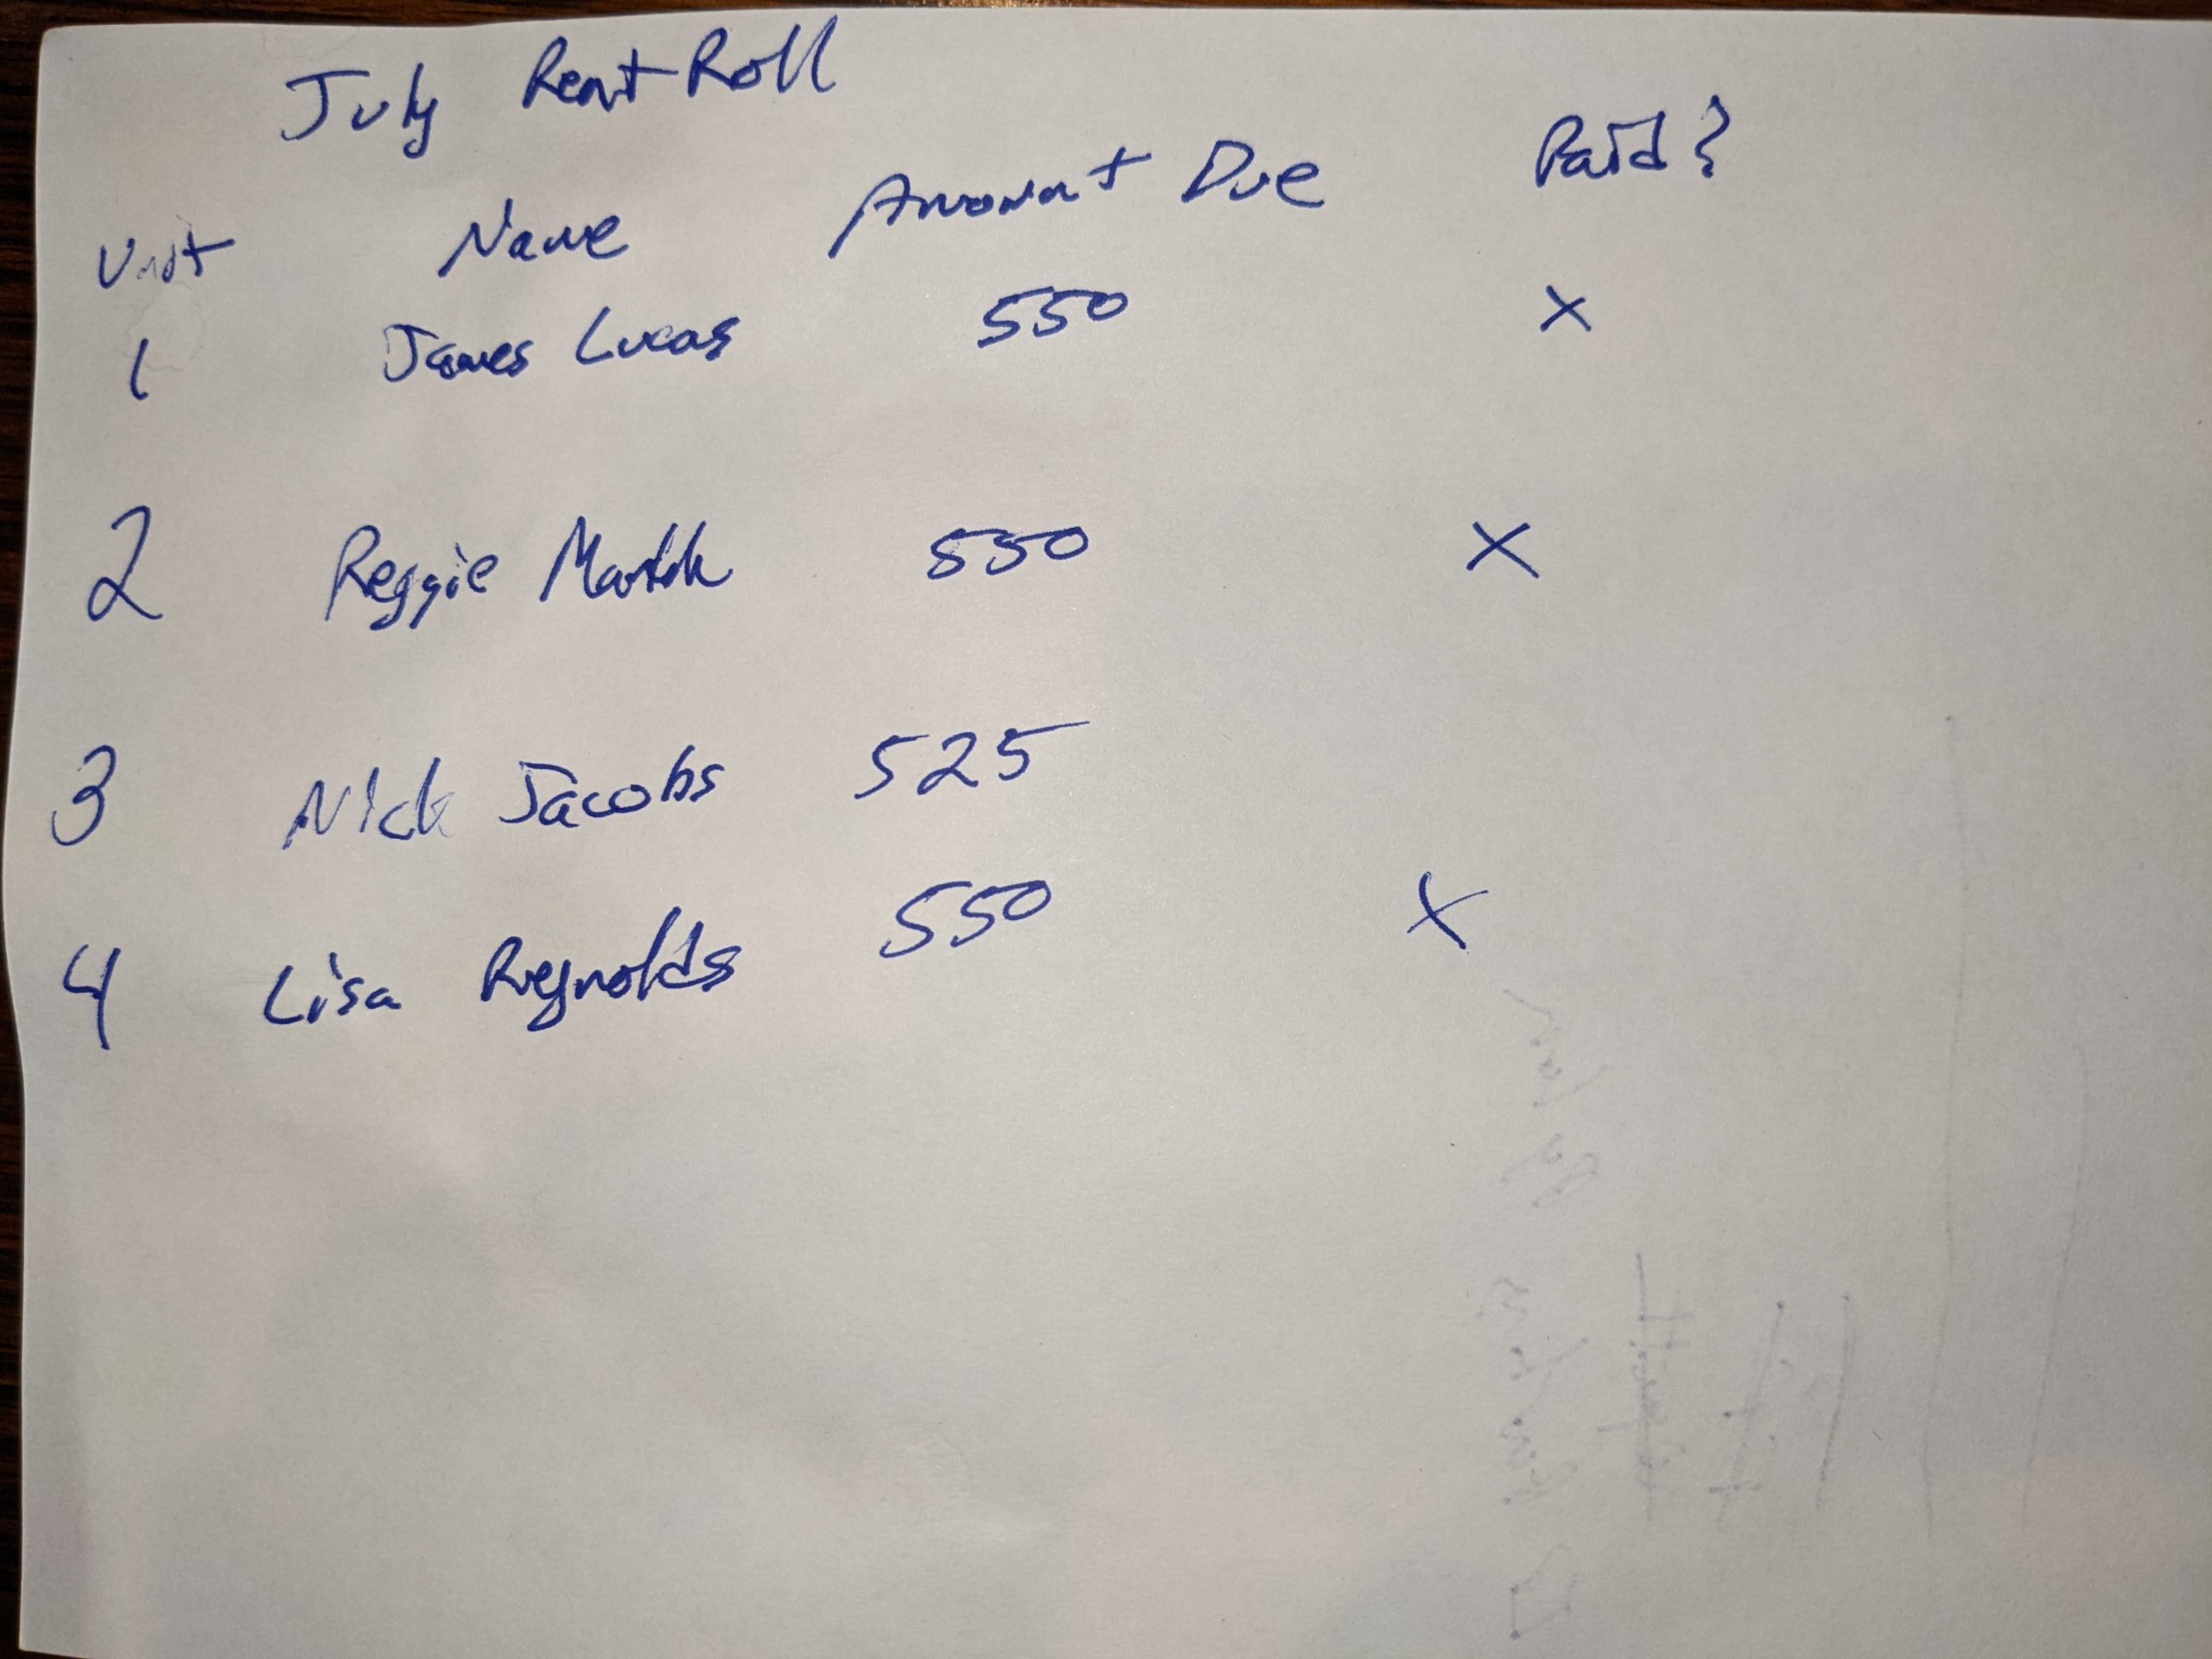 July Rent Roll
Unit Name Amount Due Paid?
1 James Lucas 550 X
2 Reggie 550 X
3 Nick Jacobs 525
4 Lisa Reynolds 550 X